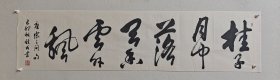 桂子
月中
落
天香
云外
飘